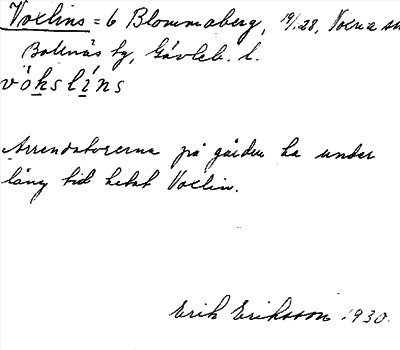 Voxlins = 6 Blommaberg, 19/28, Voxna sn
Bollnäs tg, Gävleb. l.
vókslíns
Arrendatorerna på gården ha under
lång tid hetat Voxlin.
Erik Eriksson 1930.